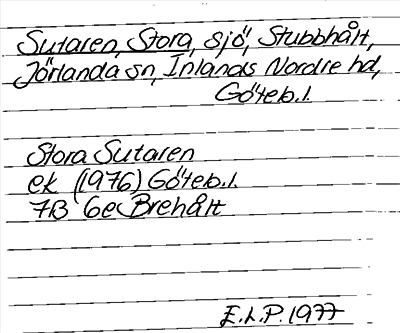 Sutaren, Stora, sjö, Stubbhålt,
Jörlanda sn, Inlands Nordre hd,
Göteb. l.
Stora Sutaren
ek (1976) Göteb. l.
7B 6e Brehålt
E.L.P. 1977